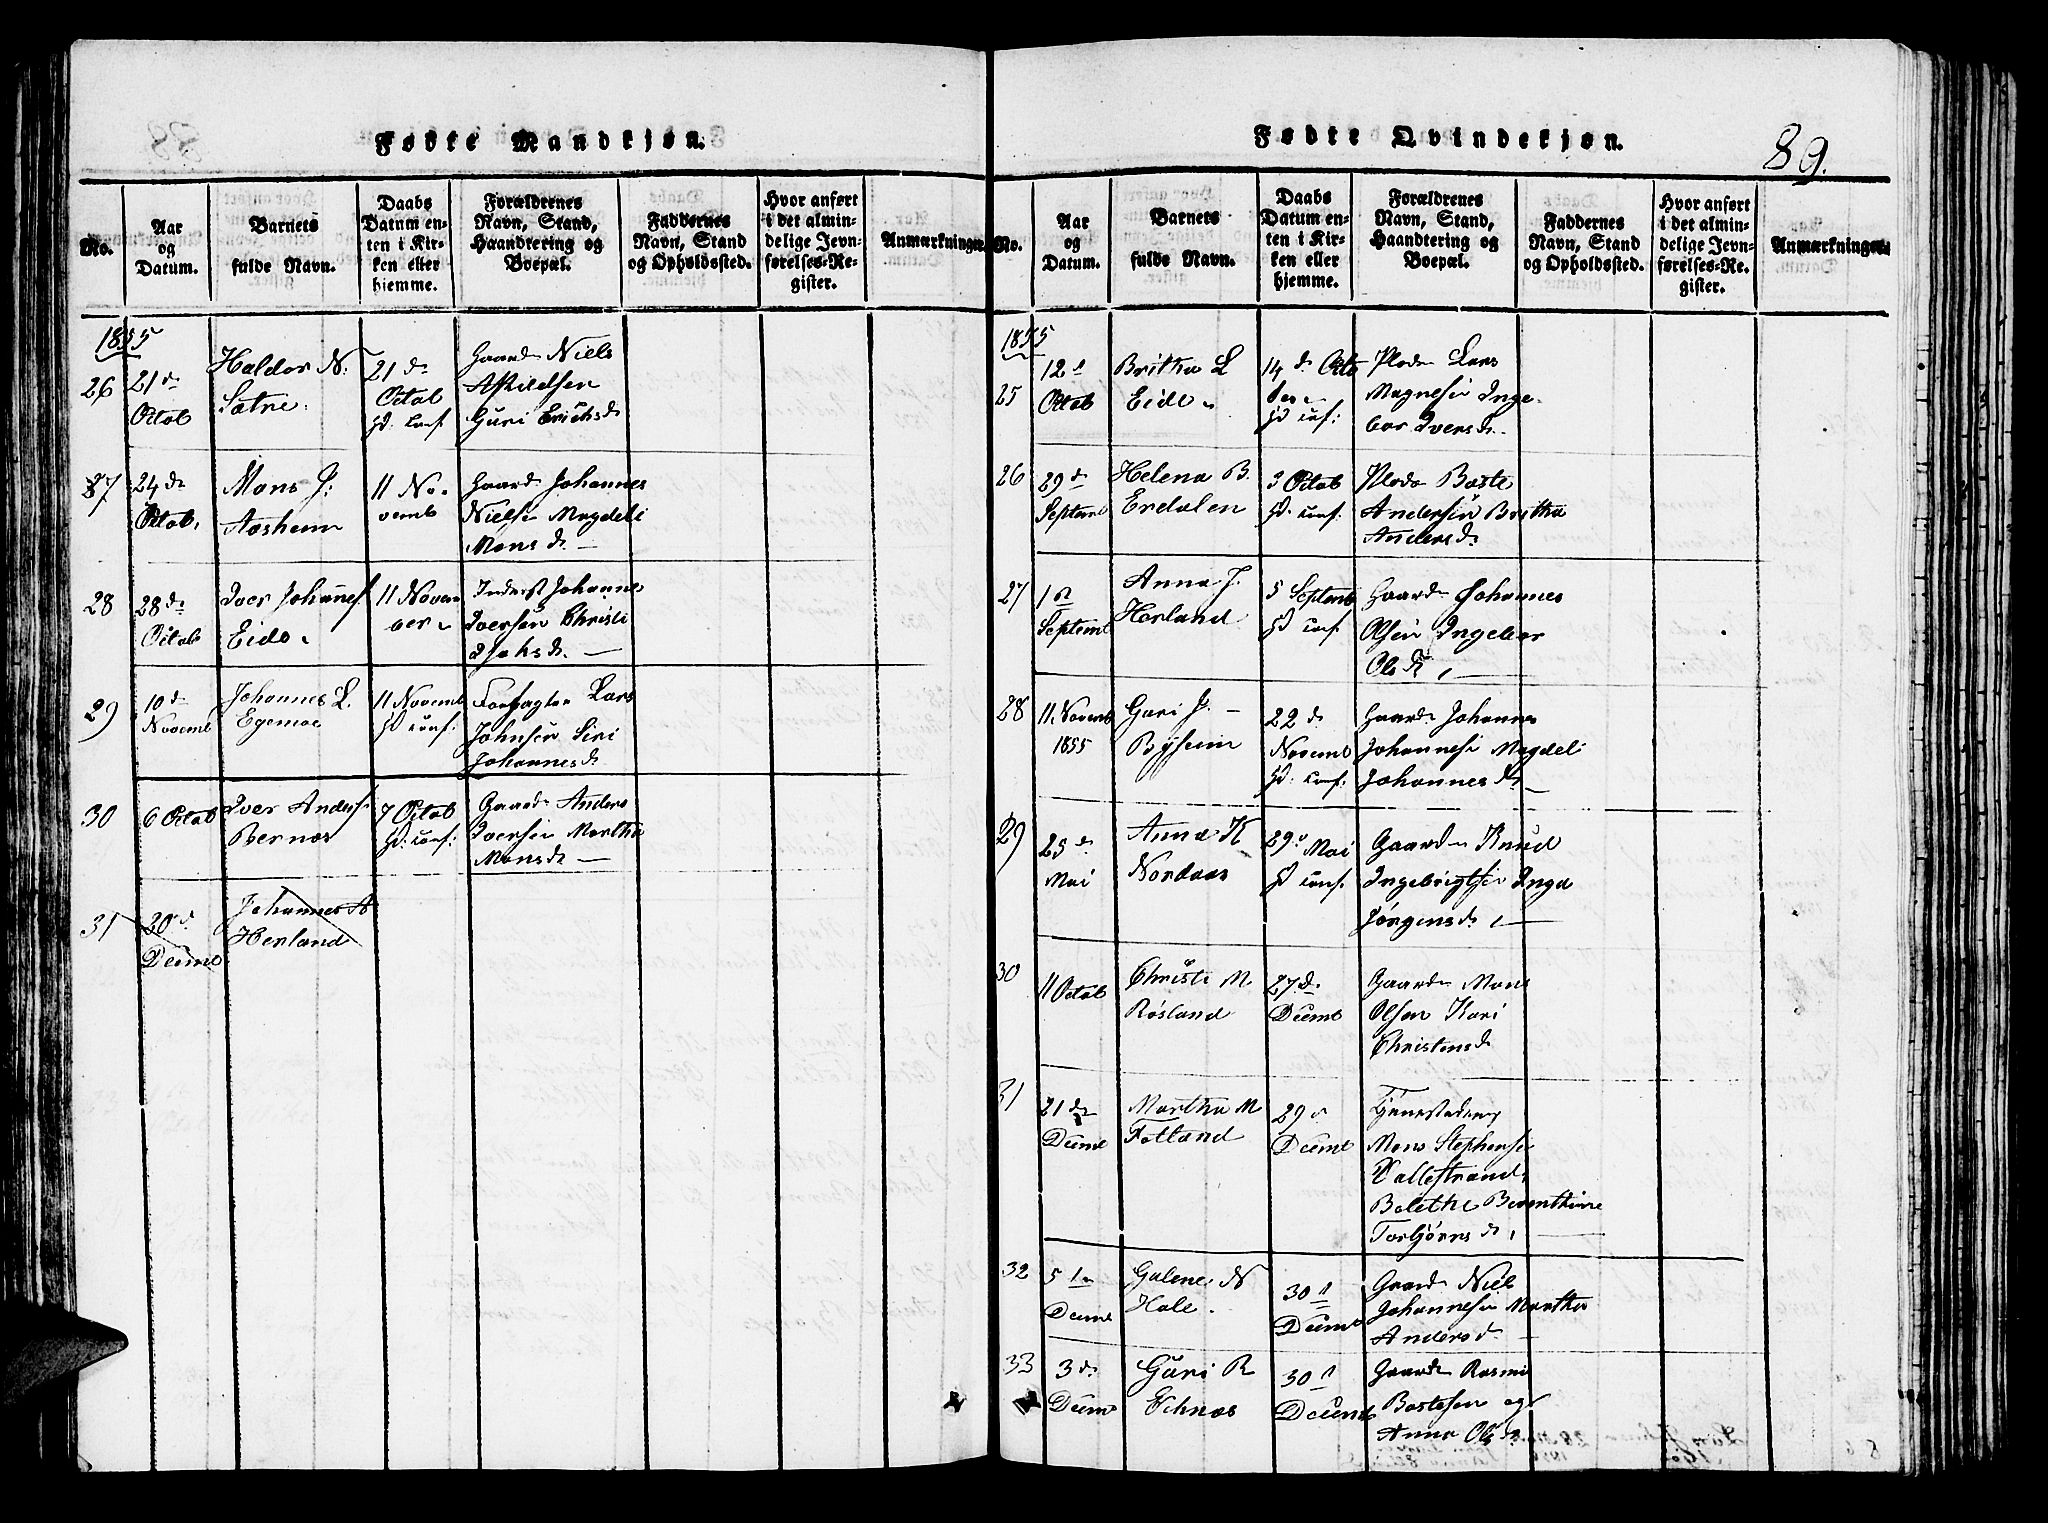 Fødte Mandkjøn.
No.
Aar
og
Datum.
Barnets
fulde Navn.
Daabs
Datum en-
ten i Kir-
ken eller
hjemme.
Forældrenes
Navn, Stand,
Haandtering og
Boepæl.
Faddernes
Navn, Stand
og Opholdssted.
Hvor anført
i det almin-
delige Jevn-
førelses-Re-
gister.
Anmærkninger.
1855
26
21 d
Octob
Haldor N:
Sætre.
21 d
Octob
Hd. Conf.
Gaard Niels
Askildsen
Guri Erichsd
27
24 d
Octob.
Mons J:
Aasheim
11 No-
vemb
Gaard Johannes
Nielsen Magdeli
Monsd. —
28
28 d
Octob
Iver Johannes.
Eide.
11 Novem
ber
Inderst Johannes
Iversen Christi
Jaksd. —
29
10 d
Novemb
Johannes L.
Egemoe
11 Novemb
Hd conf.
Lars
Johnsen Siri
Johannesd
30
6 Octob
Iver Anders.
Bernæs
7 Octob
Hd. conf:
Gaard Anders
Iversen Martha
Monsd —
31
20 d
Decemb
Johannes A
Herland
Fødte Qvindekjøn.
89.
No.
Aar
og
Datum.
Barnets
fulde Navn.
Daabs
Datum en-
ten i Kir-
ken eller
hjemme.
Forældrenes
Navn, Stand,
Haandtering og
Boepæl.
Faddernes
Navn, Stand
og Opholdssted.
Hvor anført
i det almin-
delige Jevn-
førelses-Re-
gister.
Anmærkninger.
1855
25
12 d
Octob
Britha L
Eide
14 d Octo
ber
Hd conf:
Plads Lars
Magnesen Inge-
bor Iversd.
26
29 d
Septemb
Helena B.
Erdalen
3 Octob
Hd. conf.
Plads Baste
Andersen Britha
Andersd.
27
1 d
Septemb
Anna J.
Herland
5 Septemb
Hd conf.
Gaard Johannes
Olsen Ingebor
Olsd. —
28
11 Novemb
1855
Guri J. —
Byseim
22 d
Novemb
Hd. conf.
Gaard Johannes
Johannesen Magdeli
Johannesd. —
29
25 d
Mai
Anna K
Nordaas
29 Mai
Hd conf.
Gaard Knud
Ingebrigtsen Inga
Jørgensd. —
30
11 Octob
Christi M
Røsland
27 d
Decemb
Gaard Mons
Olsen Kari
Christensd
31
21 d
Decemb
Martha M
Fotland
29 d
Decemb
Mons Stephensen
Vallestrand.
Bolethe Berenthine
Torbjørnsd. —
32
5 d
Decemb
Galene N
Hole.
30 d
Decemb
Gaard Niels
Johannesen Martha
Andersd —
33
3 d
Decemb
Guri R
Echnæs
30 d
Decemb
Gaard Rasmus
Bastesen og
Anna Olsd